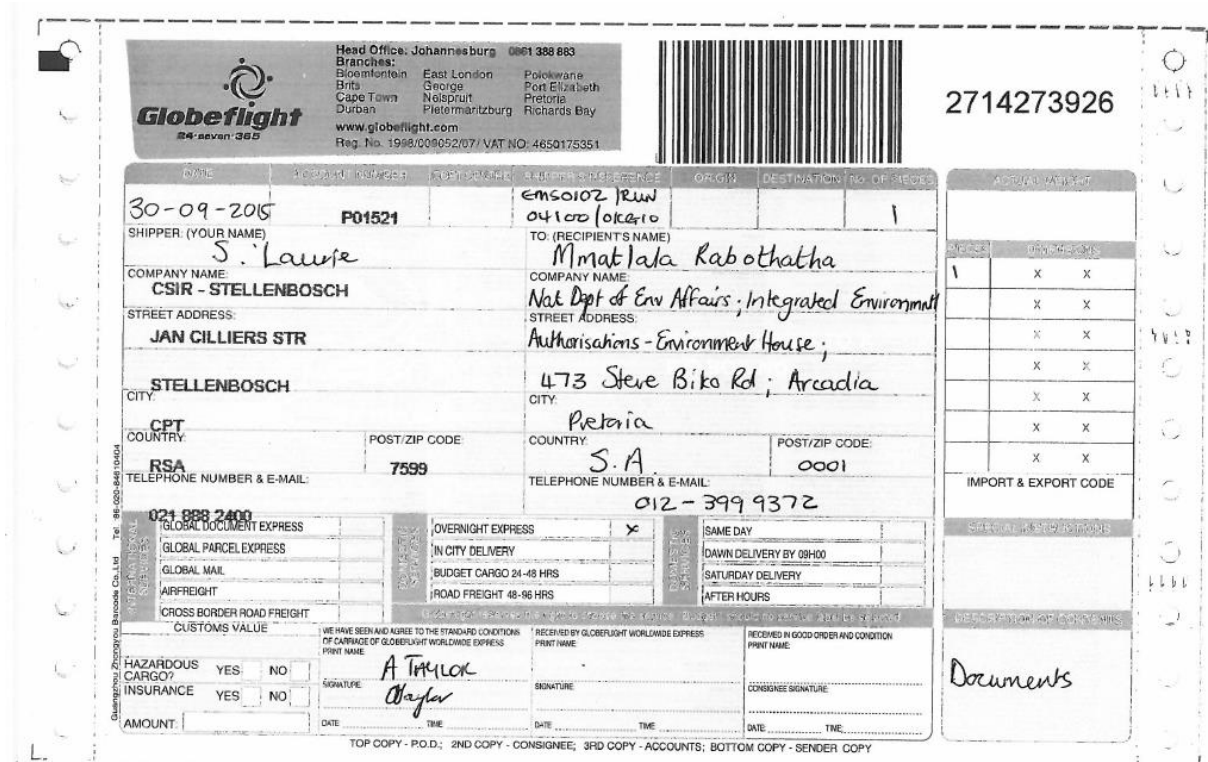 Globeflight
24-seven-365
Head Office: Johannesburg 0861 388 883
Branches:
Bloemfontein East London Polokwane
Brits George Port Elizabeth
Cape Town Nelspruit Pretoria
Durban Pietermaritzburg Richards Bay
www.globeflight.com
Reg. No. 1998/009052/07/ VAT NO: 4650175351
2714273926
DATE ACCOUNT NUMBER SENDER'S REFERENCE ORIGIN DESTINATION No. OF PIECES
ACTUAL WEIGHT
30-09-2015 P01521 EMS0102 /RUN
04100 1
SHIPPER: (YOUR NAME)
S. Laurie
COMPANY NAME:
CSIR - STELLENBOSCH
STREET ADDRESS:
JAN CILLIERS STR
STELLENBOSCH
CITY:
CPT
COUNTRY: POST/ZIP CODE:
RSA 7599
TELEPHONE NUMBER & E-MAIL:
021 888 2400
TO: (RECIPIENT'S NAME)
Mmatlala Rabothatha
COMPANY NAME:
Nat Dept of Env Affairs; Integrated Environment
STREET ADDRESS:
Authorisations - Environment House;
473 Steve Biko Rd; Arcadia
CITY:
Pretoria
COUNTRY: POST/ZIP CODE:
S.A. 0001
TELEPHONE NUMBER & E-MAIL:
012 - 399 9372
PIECES DIMENSIONS
1 X X
X X
X X
X X
X X
X X
X X
IMPORT & EXPORT CODE
SPECIAL INSTRUCTIONS
GLOBAL DOCUMENT EXPRESS
GLOBAL PARCEL EXPRESS
GLOBAL MAIL
AIRFREIGHT
CROSS BORDER ROAD FREIGHT
OVERNIGHT EXPRESS X
IN CITY DELIVERY
BUDGET CARGO 24-48 HRS
ROAD FREIGHT 48-96 HRS
SAME DAY
DAWN DELIVERY BY 09H00
SATURDAY DELIVERY
AFTER HOURS
CUSTOMS VALUE
HAZARDOUS CARGO? YES NO
INSURANCE YES NO
AMOUNT:
WE HAVE SEEN AND AGREE TO THE STANDARD CONDITIONS
OF CARRIAGE OF GLOBEFLIGHT WORLDWIDE EXPRESS
PRINT NAME:
A TAYLOR
SIGNATURE:
ATaylor
DATE TIME
RECEIVED BY GLOBEFLIGHT WORLDWIDE EXPRESS
PRINT NAME:
SIGNATURE:
DATE TIME
RECEIVED IN GOOD ORDER AND CONDITION
PRINT NAME:
CONSIGNEE SIGNATURE:
DATE: TIME:
DESCRIPTION OF CONTENTS
Documents
TOP COPY - P.O.D.; 2ND COPY - CONSIGNEE; 3RD COPY - ACCOUNTS; BOTTOM COPY - SENDER COPY
Guangzhou Zhongyou Barcode Co.,Ltd Tel 86-020-84610404